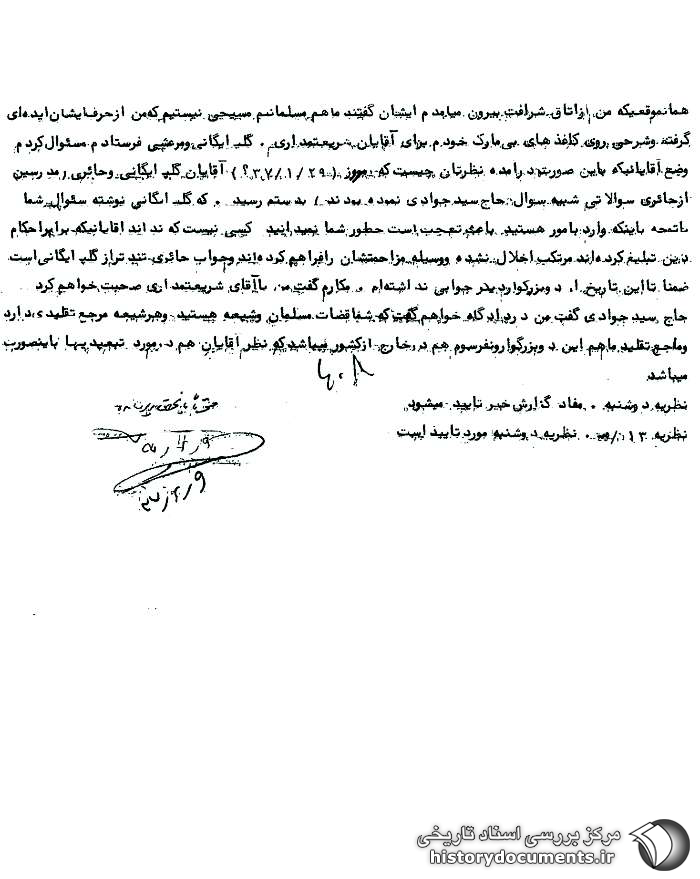 همانموقعیکه من ازاتاق شرافت بیرون میامدم ایشان گفتند ماهم مسلمانیم مسیحی نیستیم که من ازحرفایشان ایده‌ای
گرفته وشرحی روی کاغذ های بی مارک خودم برای آقایان شریعتمداری . گلپایگانی ومرعشی فرستادم مسئوال کردم
وضع آقایانیکه باین صورت درامده نظرتان چیست که روز ( ۳۷/۱/۲۹ ؟ ) آقایان گلپایگانی وحائری
ازحائری سوالاتی شبیه سوال حاج سیدجوادی نموده بودند بدستم رسید . که گلپایگانی نوشته سئوال شما
باتوجه باینکه وارد بامور هستید باعث تعجب است چطور شما نمیدانید کسی نیست که نداند اقایانیکه برابر احکام
دین تبلیغ کرده‌اند مرتکب اخلال نشده ووسیله مزاحمتشان رافراهم کرده‌اند وجواب حائری تندتر از گلپایگانی است
ضمنا تااین تاریخ از دوبزرگوار دیگر جوابی نداشته‌ام . مکارم گفت من باآقای شریعتمداری صحبت خواهم کرد
حاج سیدجوادی گفت من دردادگاه خواهم گفت که شما قضات مسلمان وشیعه هستید وهرشیعه مرجع تقلیدی دارد
ومراجع تقلید ماهم این دوبزرگوار ونفرسوم هم درخارج ازکشور میباشد که نظر آقایان هم درمورد تبعیدیها باینصورت
میباشد.
نظریه دوشنبه . مفاد گزارش خبر تایید میشود
نظریه ۱۳ . نظریه دوشنبه مورد تایید است
مرکز بررسی اسناد تاریخی
historydocuments.ir